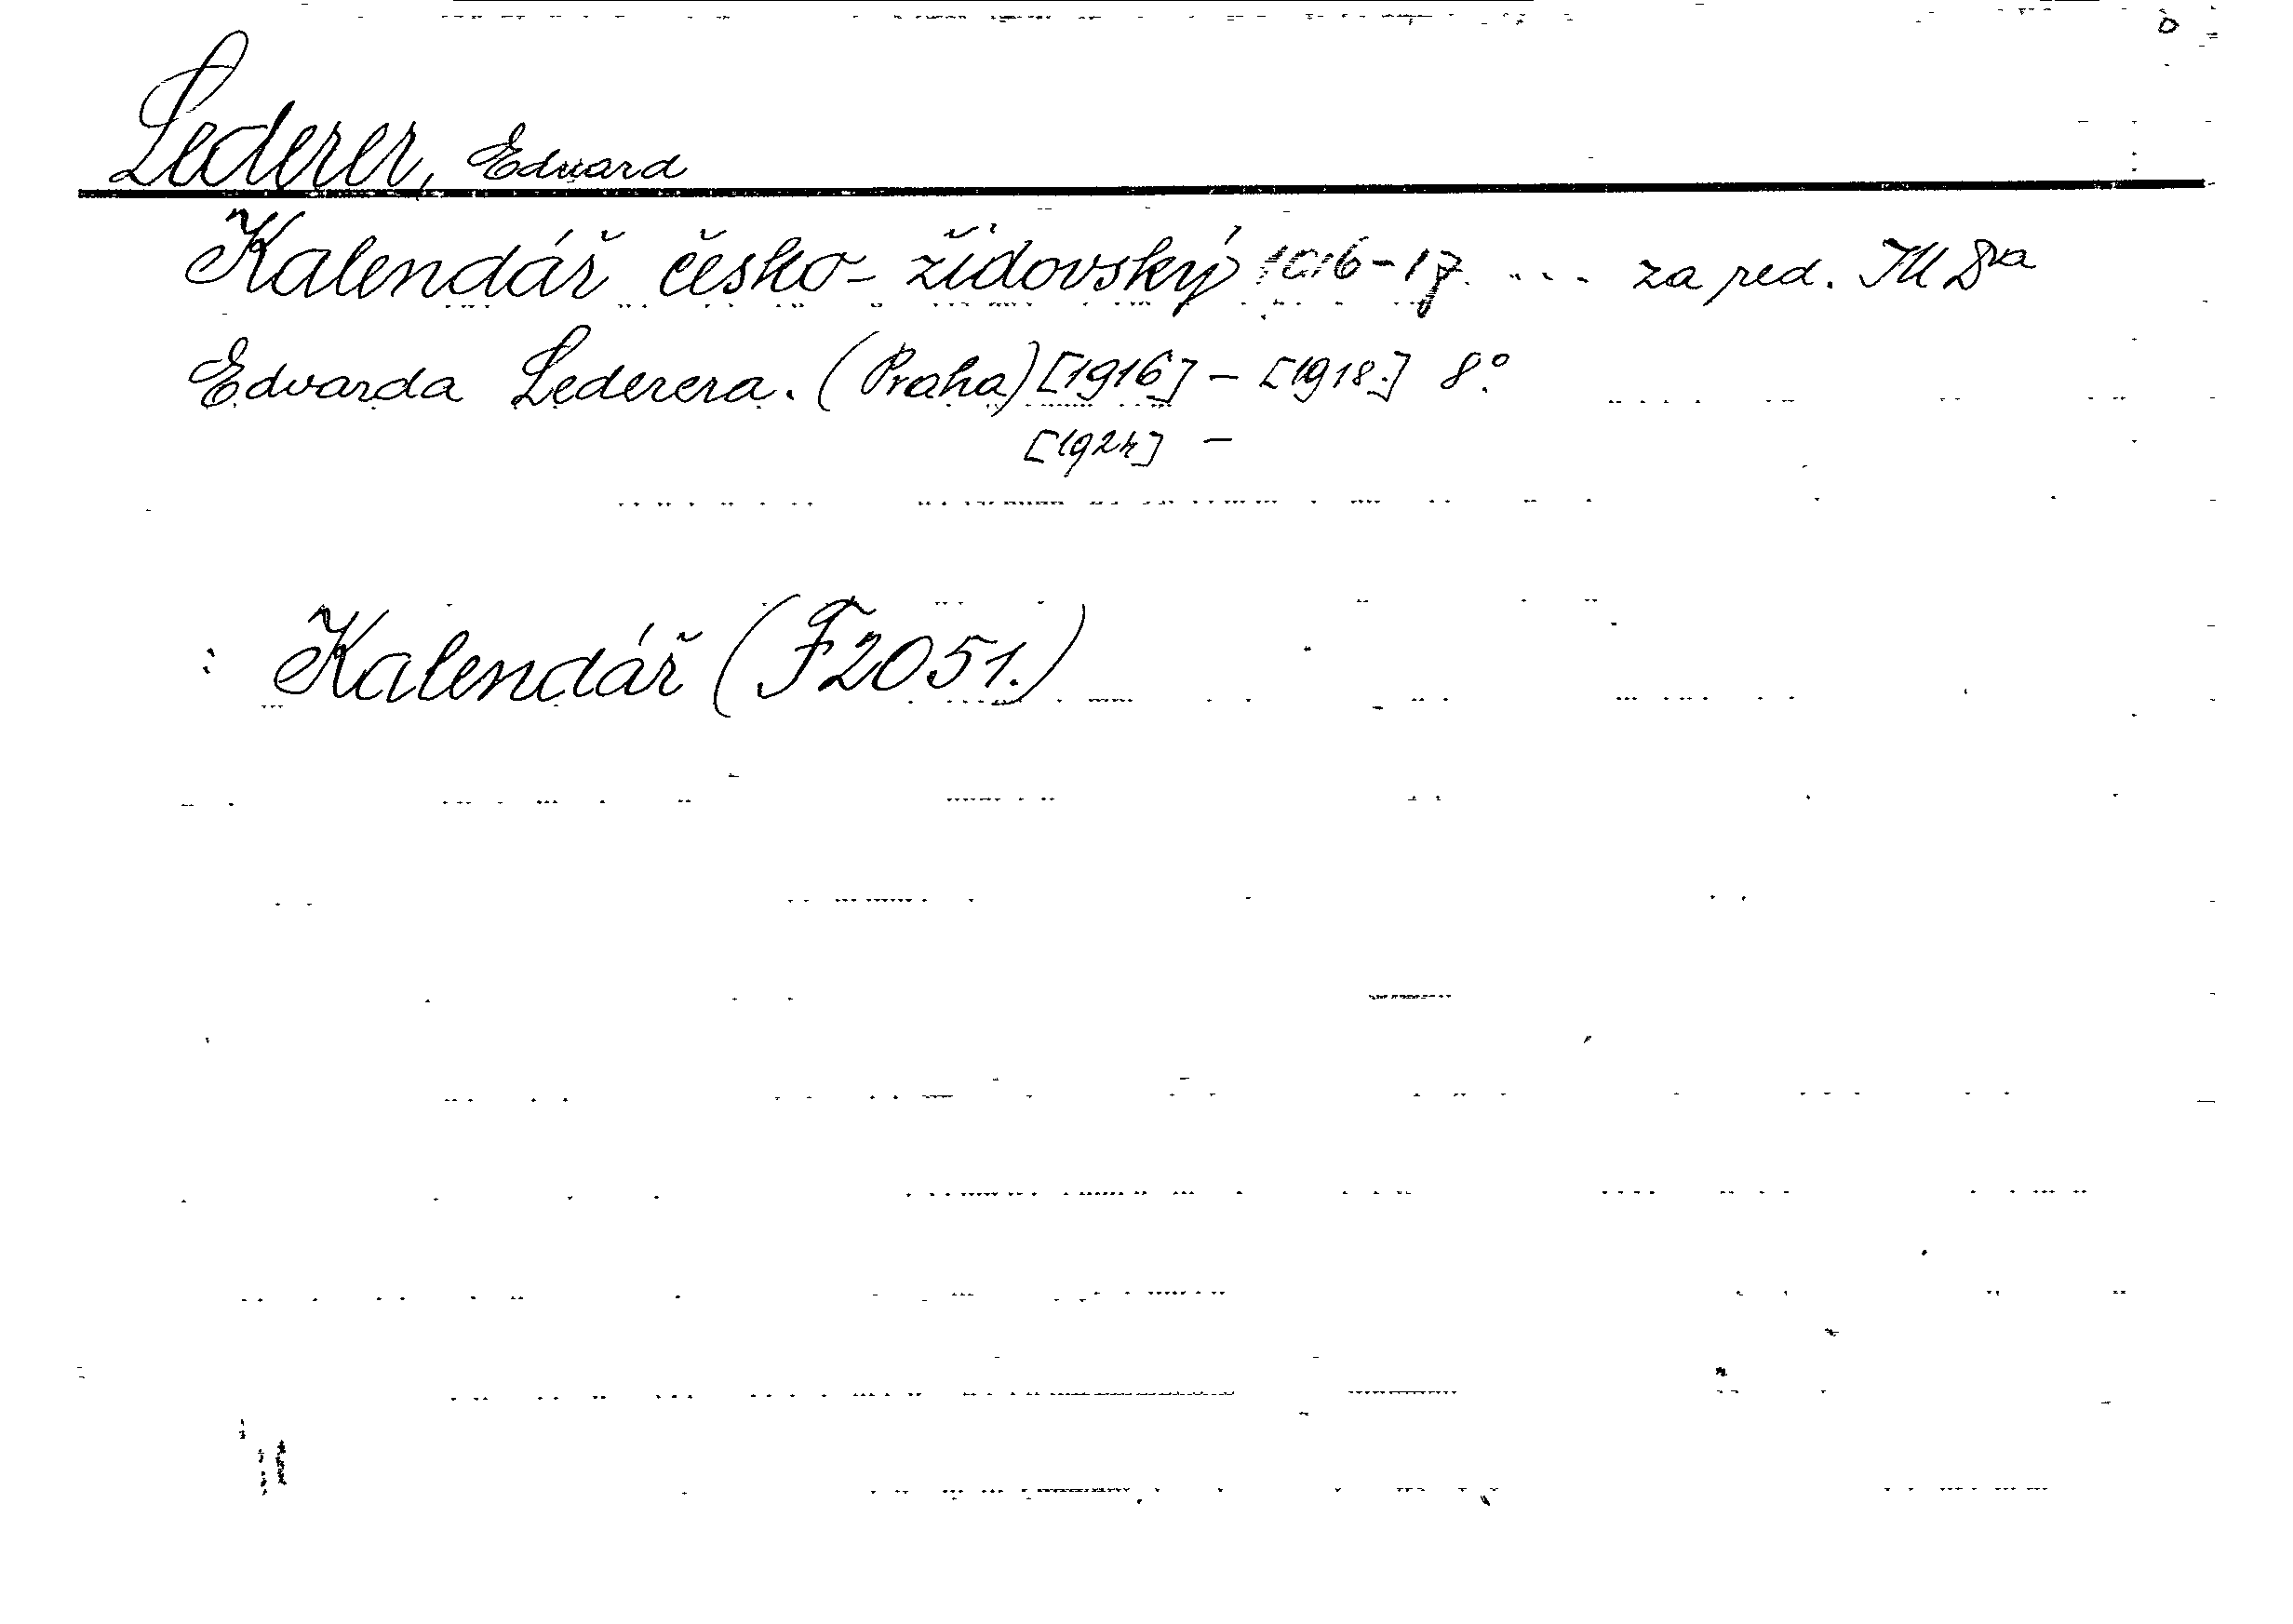 Lederer, Eduard
Kalendář česko-židovský 1916-17 ... za red. JUDra
Edvarda Lederera. (Praha) [1916] - [1918.] 8°.
[1924] -
: Kalendář (F2051.)